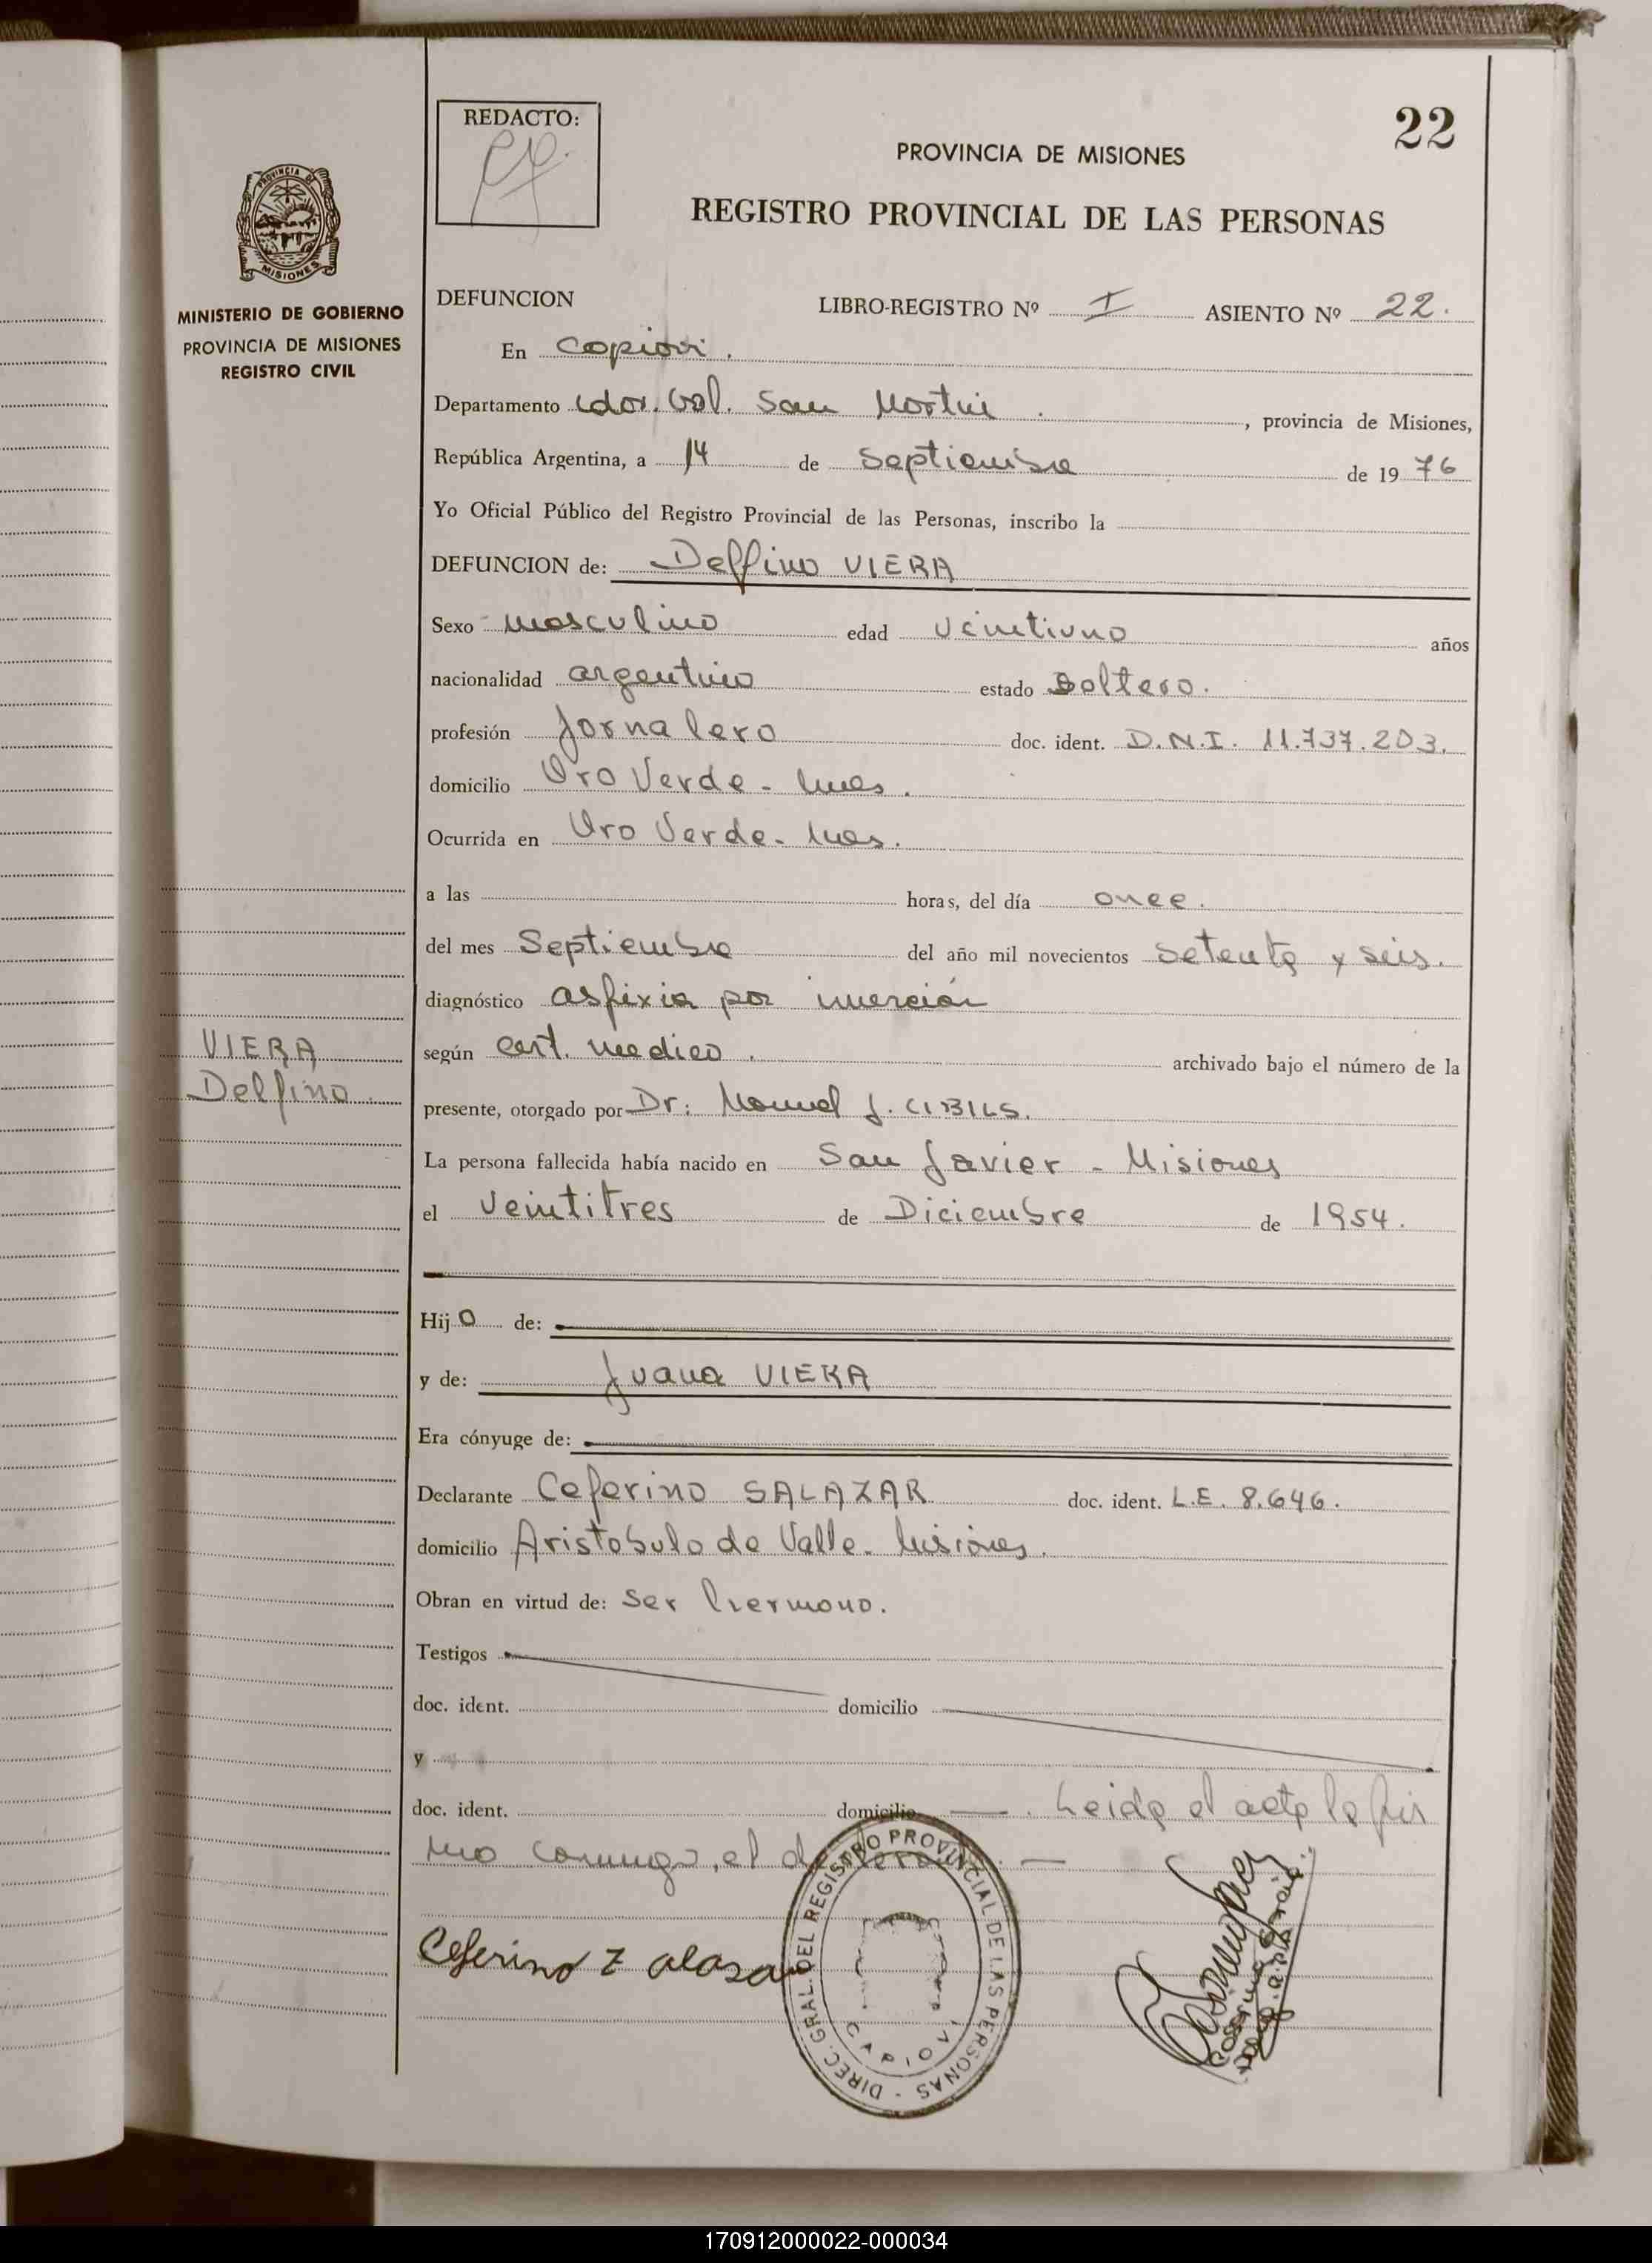 REDACTO:
22
PROVINCIA DE MISIONES
REGISTRO PROVINCIAL DE LAS PERSONAS
PROVINCIA DE
MISIONES
MINISTERIO DE GOBIERNO
PROVINCIA DE MISIONES
REGISTRO CIVIL
DEFUNCION LIBRO-REGISTRO Nº I ASIENTO Nº 22.
En Capiovi.
Departamento Ldor. Gral. San Martin, provincia de Misiones,
República Argentina, a 14 de Septiembre de 1976
Yo Oficial Público del Registro Provincial de las Personas, inscribo la
DEFUNCION de: Delfino VIERA
Sexo masculino edad veintiuno años
nacionalidad argentino estado soltero.
profesión Jornalero doc. ident. D.N.I. 11.737.203.
domicilio Oro Verde - Mnes.
Ocurrida en Oro Verde - Mnes.
a las horas, del día once.
del mes Septiembre del año mil novecientos setenta y seis.
diagnóstico asfixia por inmerción
según cert. medico. archivado bajo el número de la
presente, otorgado por Dr: Manuel J. CIBILS.
La persona fallecida había nacido en San Javier - Misiones
el veintitres de Diciembre de 1954.
VIERA
Delfino
Hijo de:
y de: Juana VIERA
Era cónyuge de:
Declarante Ceferino SALAZAR doc. ident. L.E. 8.646.
domicilio Aristobulo de Valle - Misiones.
Obran en virtud de: Ser hermano.
Testigos
doc. ident. domicilio
y
doc. ident. domicilio Leida el acta la fir
ma conmigo, el declarante.
Ceferino Zalasar
DIREC. GRAL. DEL REGISTRO PROVINCIAL DE LAS PERSONAS -
CAPIOVI
170912000022-000034